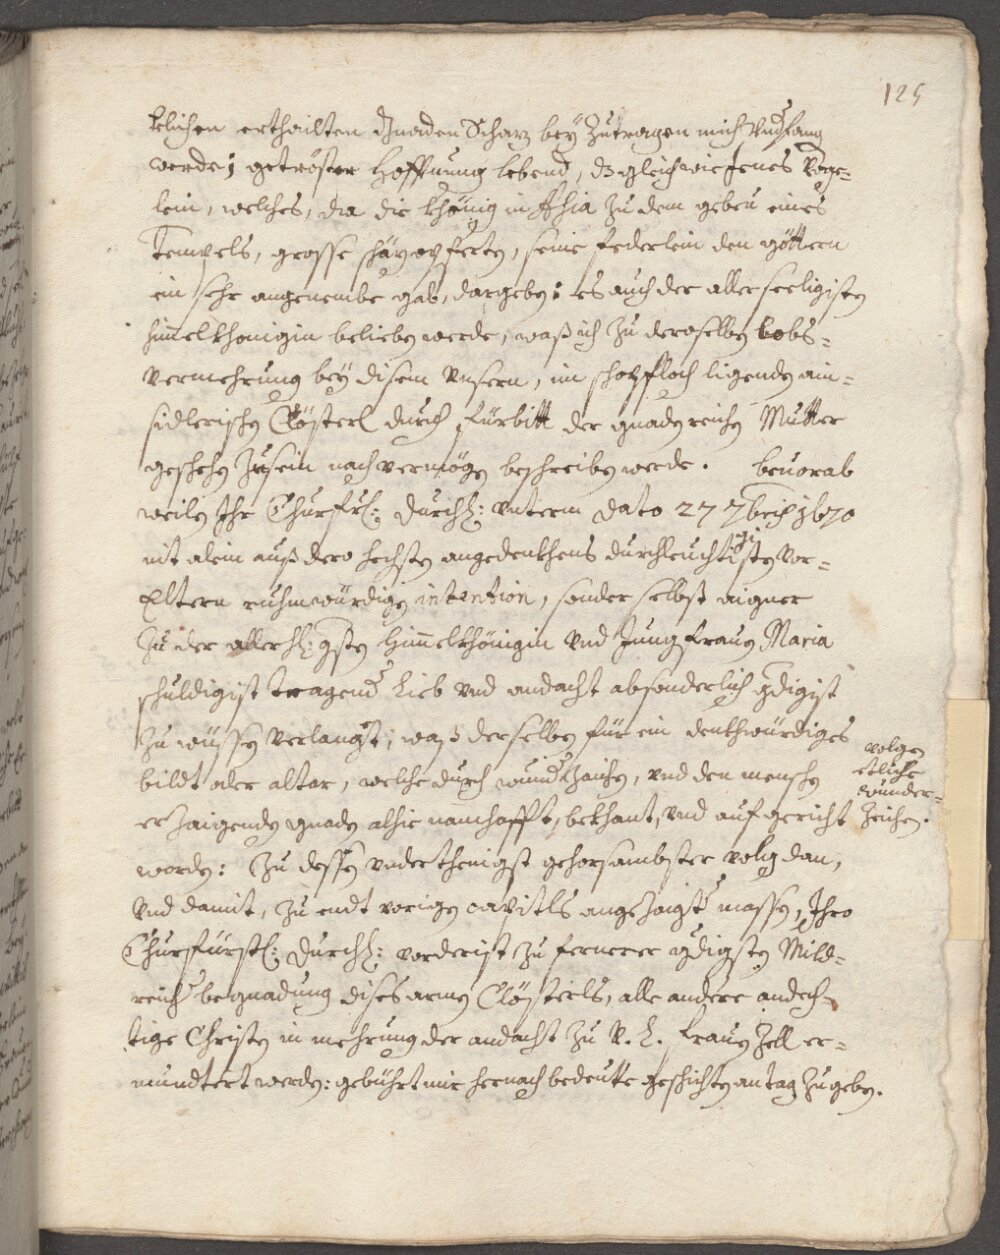 125
klichen erthailten Gnaden Scharz bey Zutragen mich Vndfang
werde; getröster Hoffnung lebend, dz gleich wie Jenes Vöge=
lein, welches, da die khönig in Asia Zu dem gebeu eines
Tempels, grosse schäz opferten, seine federlein den göttern
ein sehr angenembe gab, dargeben: es auch der allerseeligisten
himelkhönigin belieben werde, waß ich Zu deroselben lobs=
vermehrung bey disem vnsern, im schopfloch ligenden ain=
sidlerischen Clösterl durch fürbitt der gnadenreichen Mutter
geschehen Zusein nach vermögen beschreiben werde. beuorab
weilen Ihr Churfrl: Durchl: vnterm dato 27 7bris 1670
nit alein auß dero hechsten angedenkhens durchleuchtigisten Vor=
Eltern ruhmwürdigen intention, sonder selbst aigner
Zu der allerhl:gsten himelkhönigin vnd Jungfrauen Maria
schuldigist tragend Lieb vnd andacht absonderlich gdigist
Zu wüssen verlangst, waß derselben für ein denkhwürdiges
bildt oder altar, welche durch wundZaichen, vnd den menschen
erZaigenden gnaden alhie namhafft, bekhant, vnd auf gericht
worden: Zu dessen vnderthenigst gehorsambster volg dan,
vnd damit, Zu endt vorigen capitls angeZaigter massen, Ihro
Churfürstl: Durchl: vorderist Zu fernerer gdigsten Mild=
reich begnadung dises armen Clösterls, alle andere andech=
tige Christen in mehrung der andacht Zu V. L. Frauen Zell er=
mundtert werden: gebührt mir hernach bedeutte geschichten an tag Zugeben.
volgen
etliche
wunder=
Zeichen.